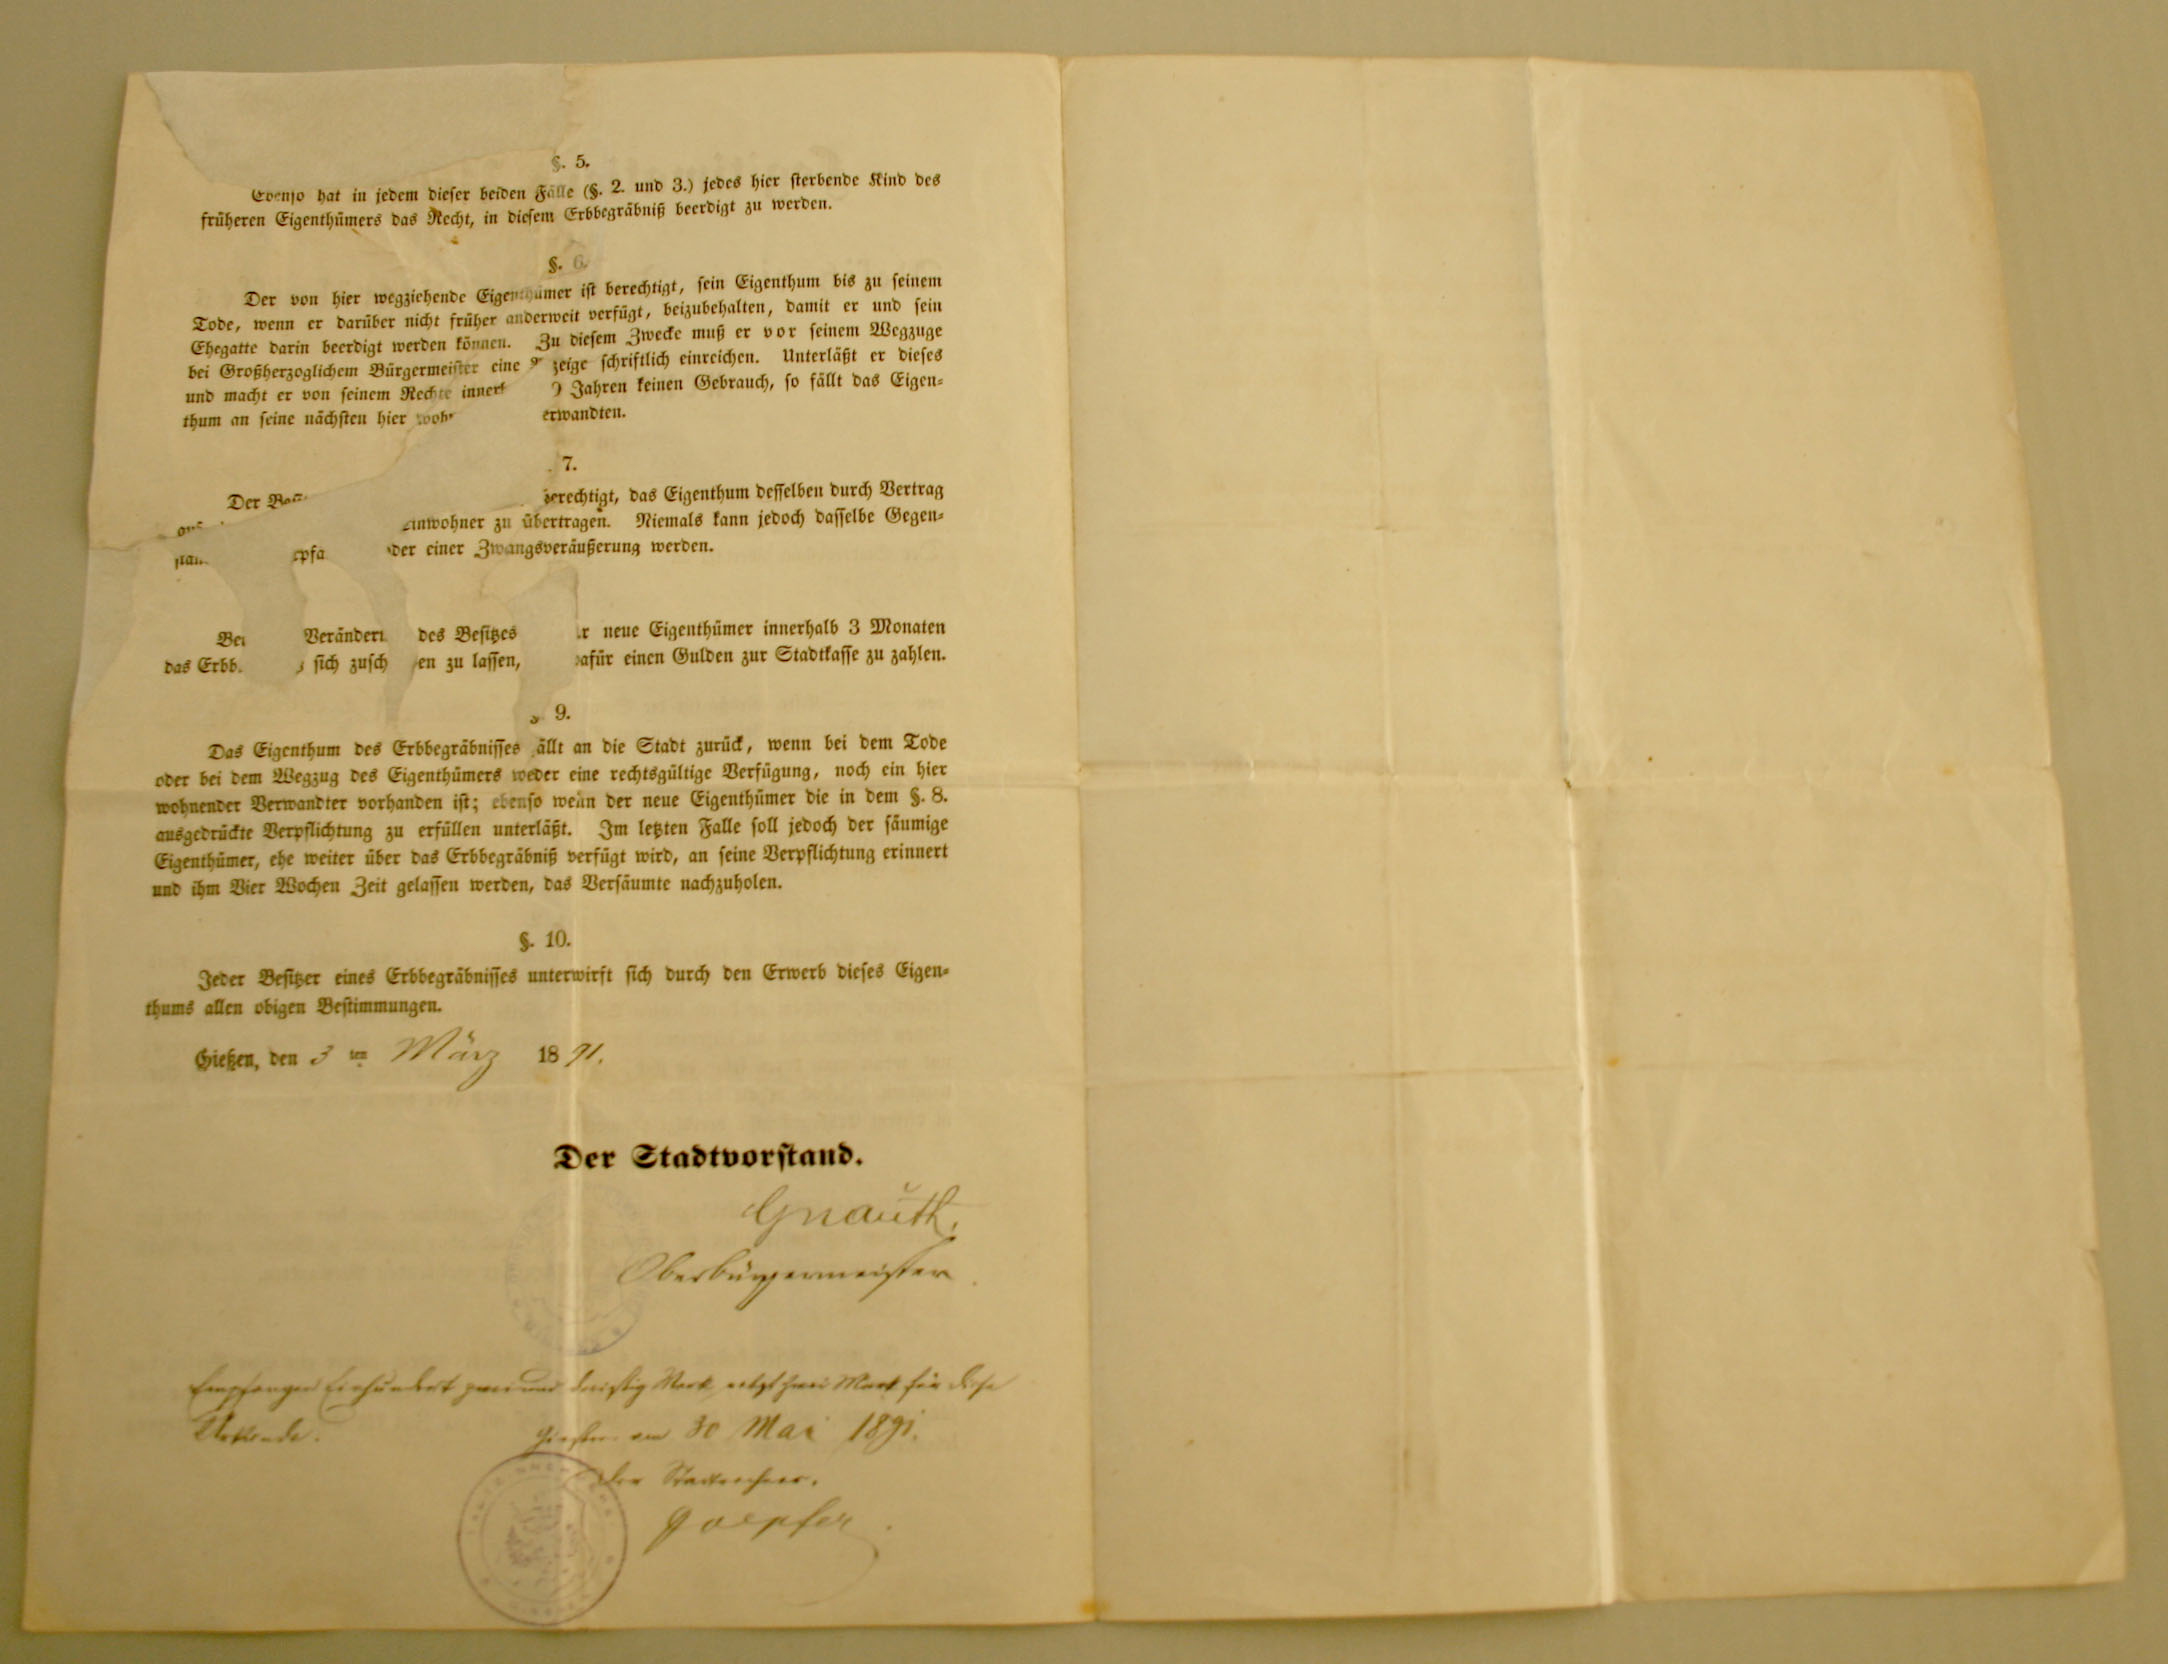 §. 5.
Ebenso hat in jedem dieser beiden Fälle (§. 2. und 3.) jedes hier sterbende Kind des
früheren Eigenthümers das Recht, in diesem Erbbegräbniß beerdigt zu werden.
§. 6.
Der von hier wegziehende Eigenthümer ist berechtigt, sein Eigenthum bis zu seinem
Tode, wenn er darüber nicht früher anderweit verfügt, beizubehalten, damit er und sein
Ehegatte darin beerdigt werden können. Zu diesem Zwecke muß er vor seinem Wegzuge
bei Großherzoglichem Bürgermeister eine zeige schriftlich einreichen. Unterläßt er dieses
und macht er von seinem Rechte inner Jahren keinen Gebrauch, so fällt das Eigen=
thum an seine nächsten hier woh erwandten.
7.
Der berechtigt, das Eigenthum desselben durch Vertrag
inwohner zu übertragen. Niemals kann jedoch dasselbe Gegen=
pfa der einer Zwangsveräußerung werden.
Bei Veränder des Besitzes r neue Eigenthümer innerhalb 3 Monaten
das Erbb sich zusch en zu lassen, dafür einen Gulden zur Stadtkasse zu zahlen.
9.
Das Eigenthum des Erbbegräbnisses fällt an die Stadt zurück, wenn bei dem Tode
oder bei dem Wegzug des Eigenthümers weder eine rechtsgültige Verfügung, noch ein hier
wohnender Verwandter vorhanden ist; ebenso wenn der neue Eigenthümer die in dem §. 8.
ausgedrückte Verpflichtung zu erfüllen unterläßt. Im letzten Falle soll jedoch der säumige
Eigenthümer, ehe weiter über das Erbbegräbniß verfügt wird, an seine Verpflichtung erinnert
und ihm Vier Wochen Zeit gelassen werden, das Versäumte nachzuholen.
§. 10.
Jeder Besitzer eines Erbbegräbnisses unterwirft sich durch den Erwerb dieses Eigen=
thums allen obigen Bestimmungen.
Gießen, den 3 ten März 1891.
Der Stadtvorstand.
Gnauth,
Oberbürgermeister
Empfangen Einhundert zwei und dreißig Mark nebst zwei Mark für diese
Urkunde.
Giessen am 30 Mai 1891.
Der Stadtrechner.